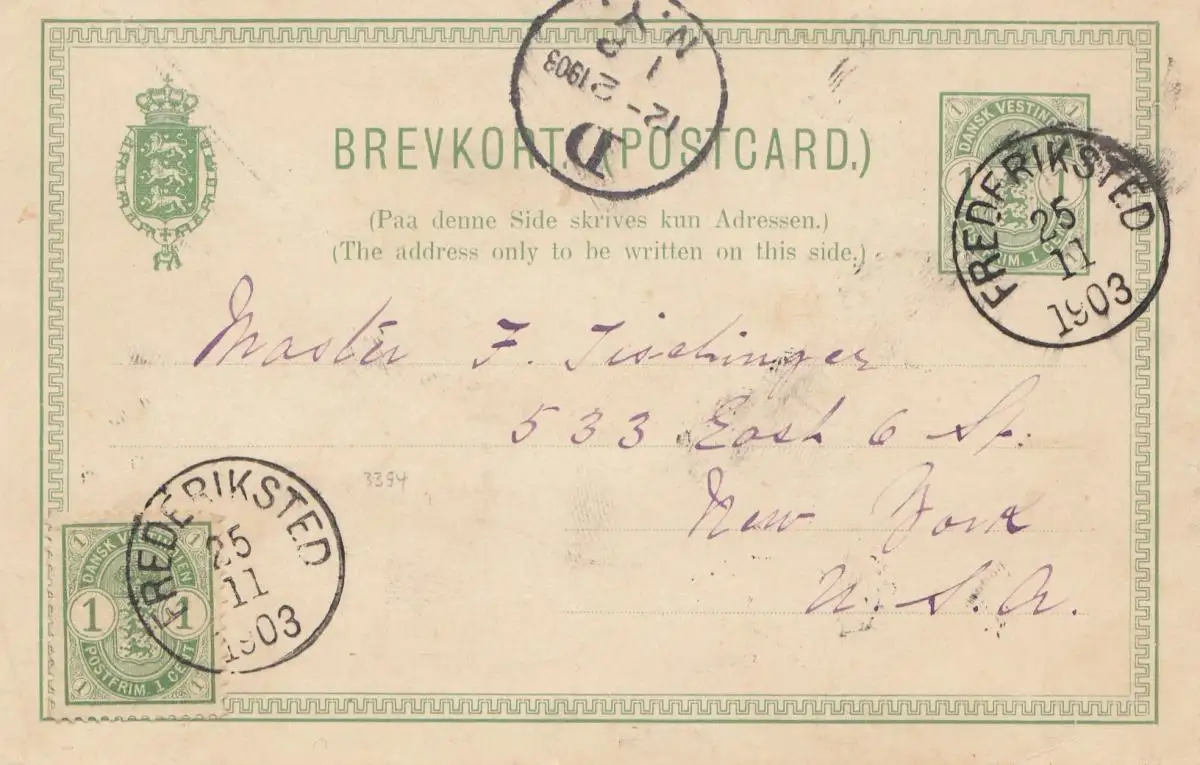 N.Y.P.
1
12-2
1903
D
BREVKORT (POSTCARD.)
(Paa denne Side skrives kun Adressen.)
(The address only to be written on this side.)
1 1
DANSK VESTIN
1
FRIM. 1 C
FREDERIKSTED
25
11
1903
Master F. Tischinger
533 East 6 St.
New York
U.S.A.
3394
FREDERIKSTED
25
11
1903
1 1
DANSK V EN
1 1
POSTFRIM. 1 CENT
1 1